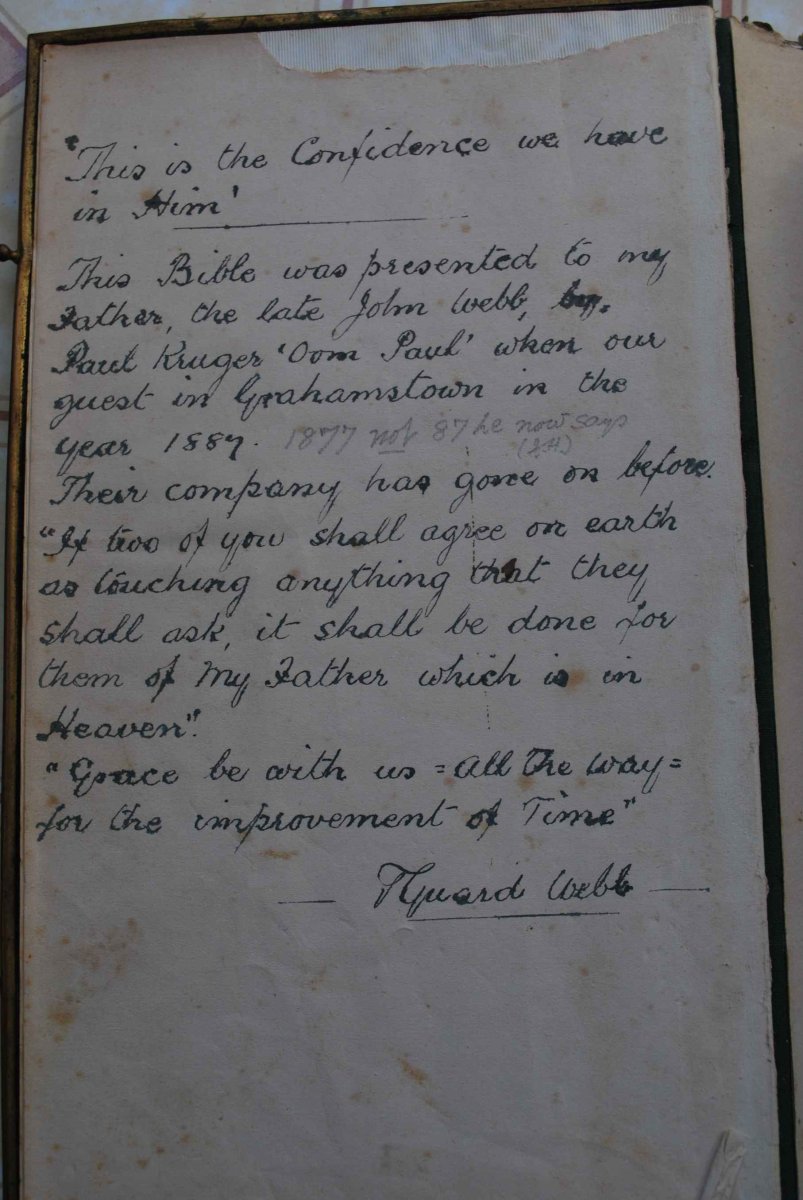 'This is the Confidence we have
in Him'
This Bible was presented to my
Father, the late John Webb, by
Paul Kruger 'Oom Paul' when our
guest in Grahamstown in the
year 1887. 1877 not 87 he now says
(J.H)
Their company has gone on before.
"If two of you shall agree on earth
as touching anything that they
shall ask, it shall be done for
them of My Father which is in
Heaven".
"Grace be with us = All the Way =
for the improvement of Time"
TGuard Webb